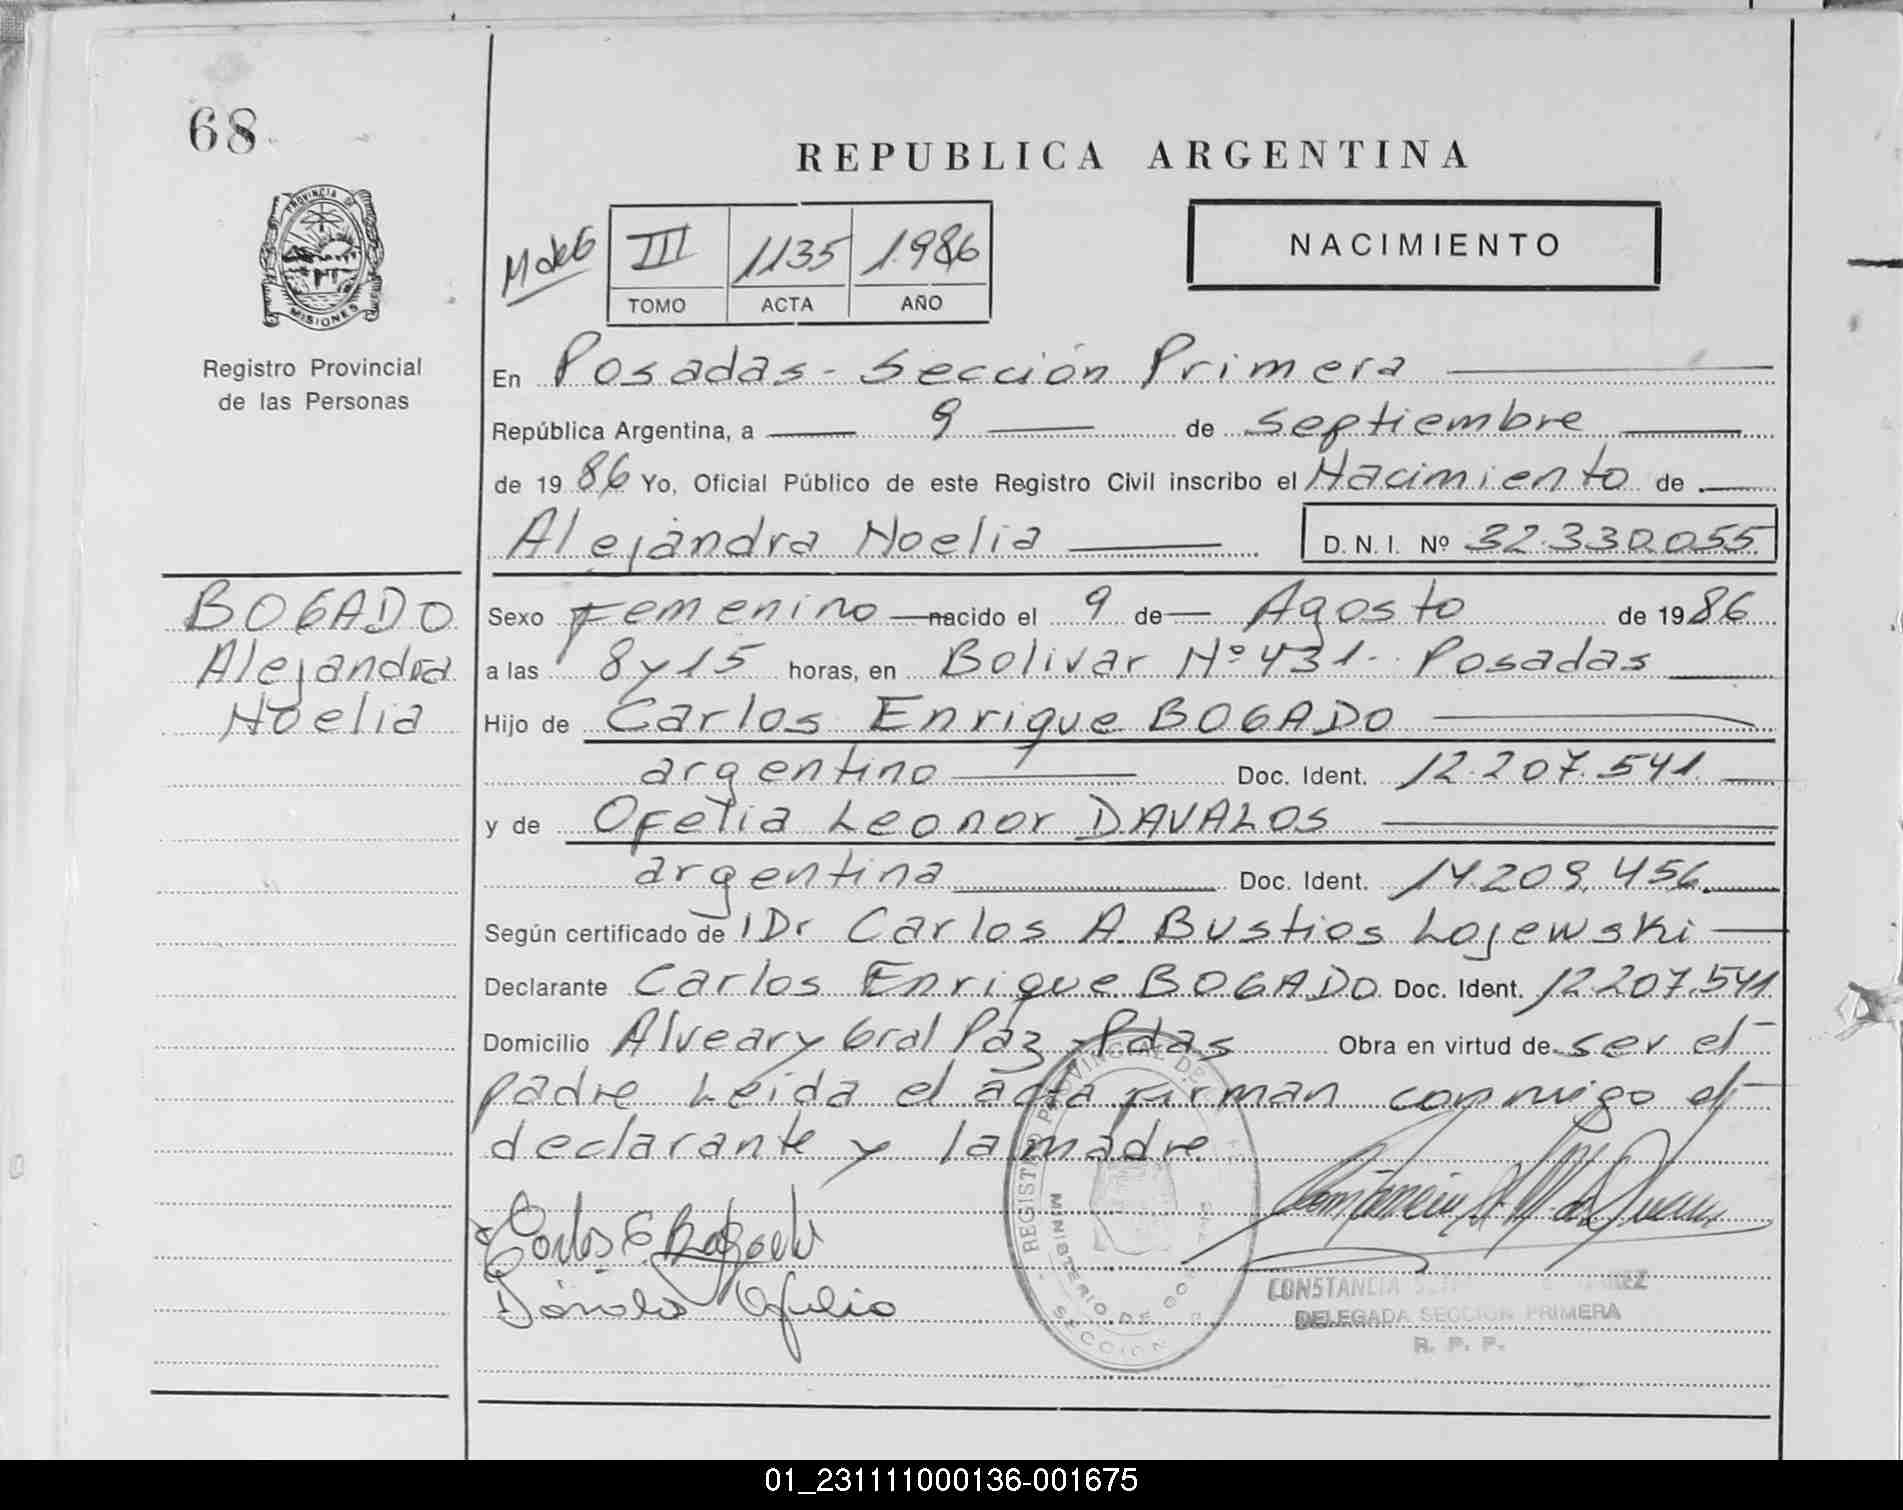 68
REPUBLICA ARGENTINA
PROVINCIA DE MISIONES
III 1135 1986
TOMO ACTA AÑO
NACIMIENTO
Registro Provincial
de las Personas
En Posadas - Sección Primera
República Argentina, a 9 de septiembre
de 1986 Yo, Oficial Público de este Registro Civil inscribo el Nacimiento de
Alejandra Noelia D. N. I. Nº 32.330.055
BOGADO
Alejandra
Noelia
Sexo Femenino nacido el 9 de Agosto de 1986
a las 8 y 15 horas, en Bolivar Nº 431 - Posadas
Hijo de Carlos Enrique BOGADO
argentino Doc. Ident. 12.207.541
y de Ofelia Leonor DAVALOS
argentina Doc. Ident. 14.209.456
Según certificado de Dr Carlos A. Bustios Lojewski
Declarante Carlos Enrique BOGADO Doc. Ident. 12.207.541
Domicilio Alvear y Gral Paz - Pdas Obra en virtud de ser el
padre Leida el acta firman conmigo el
declarante y la madre
Carlos E. Bogado
Ofelia
REGISTRO PROVINCIAL DE
MINISTERIO DE GO
SECCION
CONSTANCIA
DELEGADA SECCION PRIMERA
R. P. P.
01_231111000136-001675